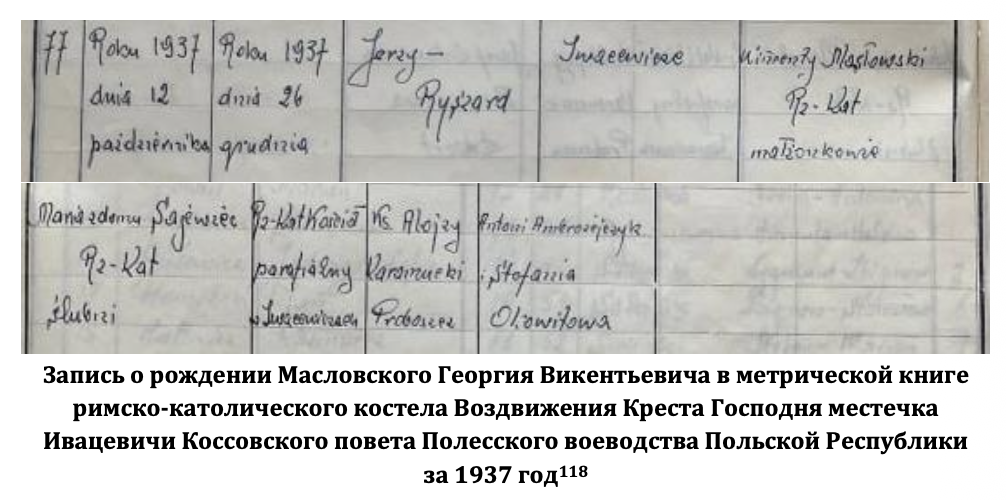 77
Roku 1937
dnia 12
października
Roku 1937
dnia 26
grudnia
Jerzy –
Ryszard
Iwacewicze
Masłowski
Rz-Kat
małżonkowie
Maria z domu
Rz-Kat
ślubni
Rz-Kat Kościół
parafialny
w Iwacewiczach
Ks. Alojzy
Proboszcz
Antoni Ambrożejczyk
i Stefania
Запись о рождении Масловского Георгия Викентьевича в метрической книге
римско-католического костела Воздвижения Креста Господня местечка
Ивацевичи Коссовского повета Полесского воеводства Польской Республики
за 1937 год118